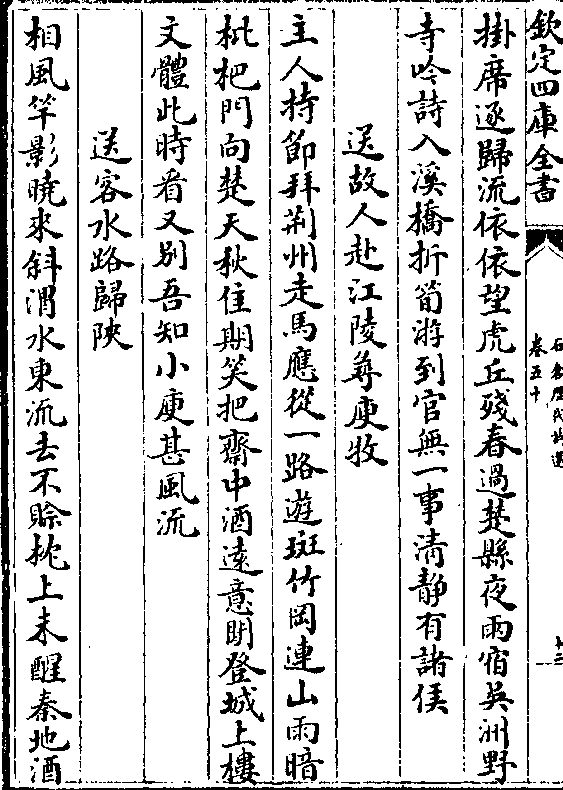 欽定四庫全書
石倉歷代詩選
卷五十
十三
掛席逐歸流依依望虎丘殘春過楚縣夜雨宿吳洲野
寺吟詩入溪橋折筍游到官無一事清靜有諸侯
送故人赴江陵尋庾牧
主人持節拜荊州走馬應從一路遊斑竹岡連山雨暗
枇杷門向楚天秋佳期笑把齋中酒遠意閒登城上樓
文體此時看又别吾知小庾甚風流
送客水路歸陝
相風竿影曉來斜渭水東流去不賒枕上未醒秦地酒